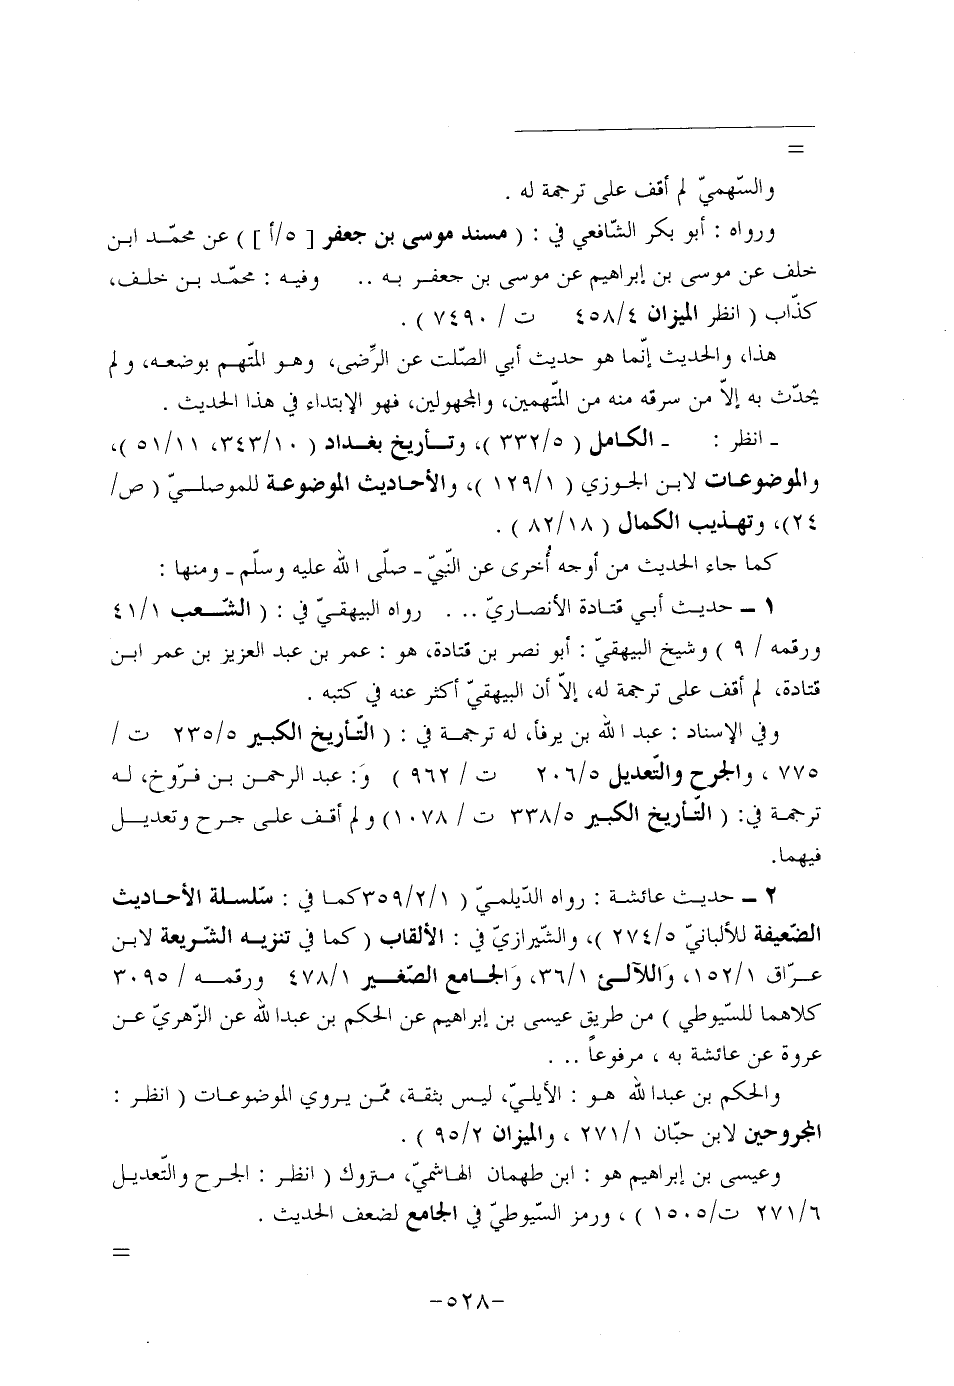 =
والسّهميّ لم أقف على ترجمة له .
ورواه : أبو بكر الشّافعي في : ( مسند موسى بن جعفر [ ٥/أ ] ) عن محمّد ابن
خلف عن موسى بن إبراهيم عن موسى بن جعفر به .. وفيه : محمّد بن خلف،
كذّاب ( انظر الميزان ٤٥٨/٤ ت / ٧٤٩٠ ) .
هذا، والحديث إنّما هو حديث أبي الصّلت عن الرِّضى، وهو المتّهم بوضعه، و لم
يحدّث به إلاّ من سرقه منه من المتّهمين، والمجهولين، فهو الإبتداء في هذا الحديث .
ـ انظر : ـ الكامل ( ٣٣٢/٥ )، وتأريخ بغداد ( ٣٤٣/١٠، ٥١/١١ )،
والموضوعات لابن الجوزي ( ١٢٩/١ )، والأحاديث الموضوعة للموصليّ ( ص/
٢٤)، وتهذيب الكمال ( ٨٢/١٨ ) .
كما جاء الحديث من أوجه أُخرى عن النّبيّ ـ صلّى الله عليه وسلّم ـ ومنها :
١ ـ حديث أبي قتادة الأنصاريّ .. . رواه البيهقيّ في : ( الشّعب ٤١/١
ورقمه / ٩ ) وشيخ البيهقيّ : أبو نصر بن قتادة، هو : عمر بن عبد العزيز بن عمر ابن
قتادة، لم أقف على ترجمة له، إلاّ أن البيهقيّ أكثر عنه في كتبه .
وفي الإسناد : عبد الله بن يرفأ، له ترجمة في : ( التّأريخ الكبير ٢٣٥/٥ ت /
٧٧٥ ، والجرح والتّعديل ٢٠٦/٥ ت / ٩٦٢ ) وَ: عبد الرحمن بن فرّوخ، له
ترجمة في: ( التّأريخ الكبير ٣٣٨/٥ ت / ١٠٧٨) و لم أقف على جرح وتعديل
فيهما.
٢ ـ حديث عائشة : رواه الدّيلميّ ( ٣٥٩/٢/١كما في : سّلسلة الأحاديث
الضّعيفة للألبانيّ ٢٧٤/٥ )، والشّيرازيّ في : الألقاب ( كما في تنزيه الشّريعة لابن
عرّاق ١٥٢/١، وَاللآلئ ٣٦/١، وَالجامع الصّغير ٤٧٨/١ ورقمه / ٣٠٩٥
كلاهما للسّيوطي ) من طريق عيسى بن إبراهيم عن الحكم بن عبدالله عن الزّهريّ عن
عروة عن عائشة به ، مرفوعاً .. .
والحكم بن عبدالله هو : الأيليّ، ليس بثقة، ممّن يروي الموضوعات ( انظر :
المجروحين لابن حبّان ٢٧١/١ ، والميزان ٩٥/٢ ) .
وعيسى بن إبراهيم هو : ابن طهمان الهاشميّ، متروك ( انظر : الجرح والتّعديل
٢٧١/٦ ت/١٥٠٥ ) ، ورمز السّيوطيّ في الجامع لضعف الحديث .
=
-٥٢٨-